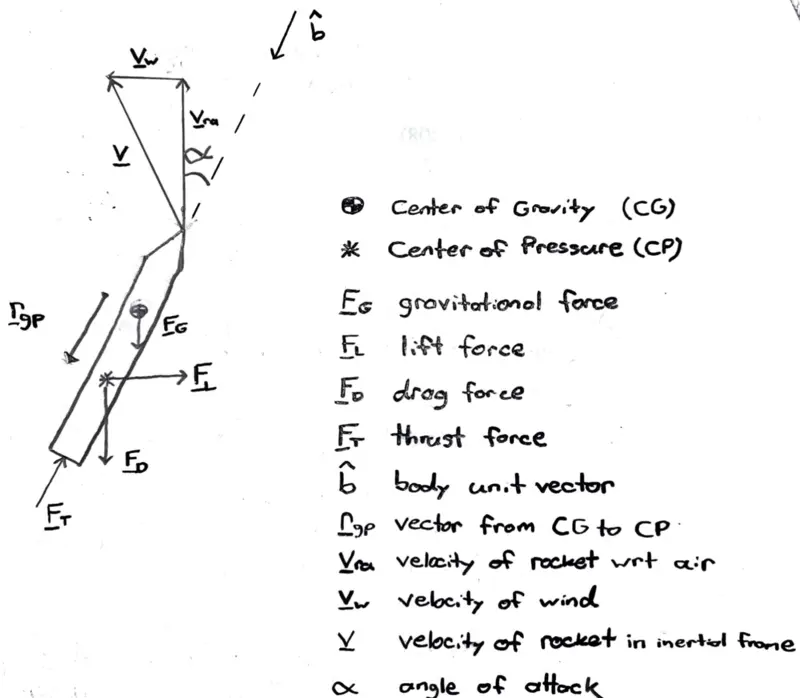 b̂
V_w
V_ra
α
V
r_gp
F_G
F_L
F_D
F_T
Center of Gravity (CG)
Center of Pressure (CP)
F_G gravitational force
F_L lift force
F_D drag force
F_T thrust force
b̂ body unit vector
r_gp vector from CG to CP
V_ra velocity of rocket wrt air
V_w velocity of wind
V velocity of rocket in inertial frame
α angle of attack